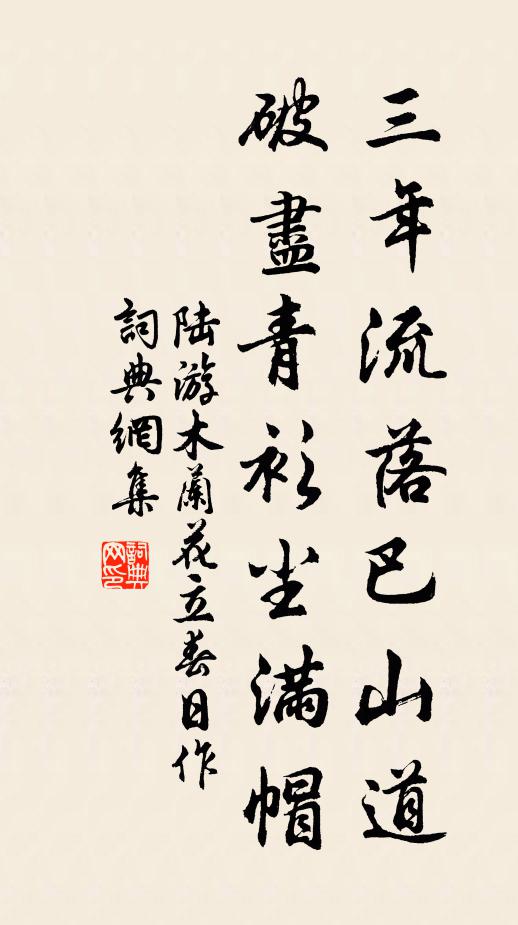 三年流落巴山道
破盡青衫尘滿帽
陆游木蘭花立春日作
詞典網集
詞典网印